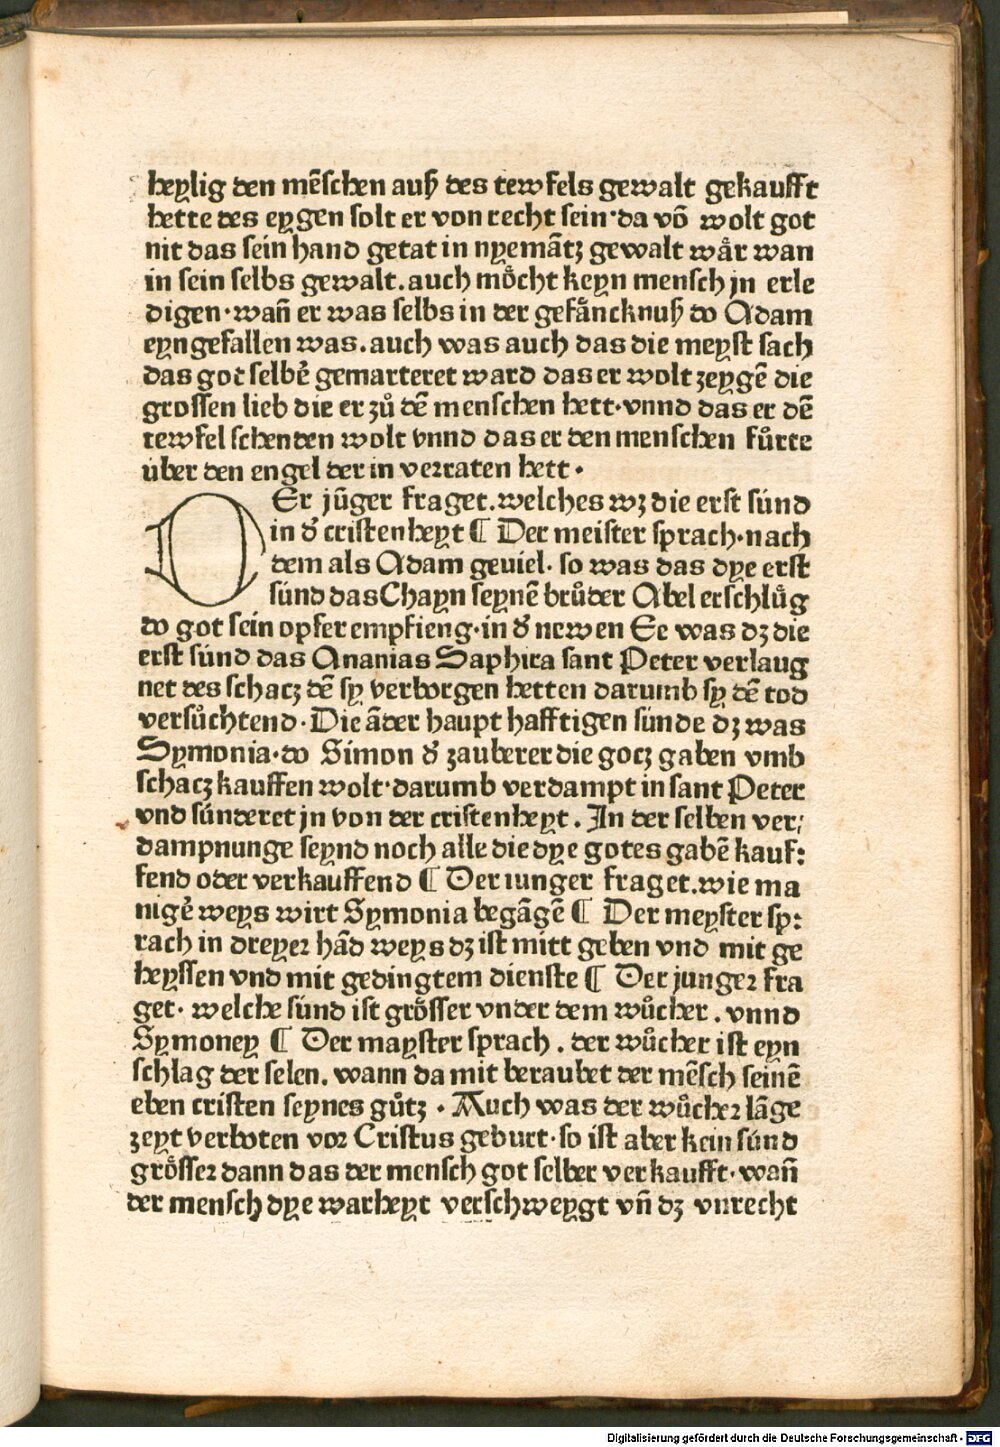 heylig den mēſchen auſz des tewfels gewalt gekaufft
hette des eygen ſolt er von recht ſein·da vō wolt got
nit das ſein hand getat in nyemātz gewalt wår wan
in ſein ſelbs gewalt.auch moͤcht keyn menſch jn erle
digen·wañ er was ſelbs in der gefaͤncknuſz do Adam
eyngefallen was.auch was auch das die meyſt ſach
das got ſelbē gemarteret ward das er wolt zeygē die
groſſen lieb die er zuͦ dē menſchen hett·vnnd das er dē
tewfel ſchenden wolt vnnd das er den menſchen fuͤrte
über den engel der in verraten hett·
DEr jūger fraget.welches wz die erſt ſünd
in d̕ criſtenheyt ¶ Der meiſter ſprach·nach
dem als Adam geviel· ſo was das dye erſt
ſünd das Chayn ſeynē bruͦder Abel erſchluͦg
do got ſein opfer empfieng·in d̕ newen Ee was dz die
erſt ſünd das Ananias Saphira ſant Peter verlaug
net des ſchacz dē ſy verborgen hetten darumb ſy dē tod
verſuͦchtend·Die āder haupt hafftigen ſünde dz was
Symonia·do Simon d̕ zauberer die gocz gaben vmb
ſchacz kauffen wolt·darumb verdampt in ſant Peter
vnd ſünderet jn von der criſtenheyt. In der ſelben ver⸗
dampnunge ſeynd noch alle die dye gotes gabē kauf⸗
fend oder verkauffend ¶ Der iunger fraget.wie ma
nigē weys wirt Symonia begāgē ¶ Der meyſter ſp⸗
rach in dreyer hād weys dz iſt mitt geben vnd mit ge
heyſſen vnd mit gedingtem dienſte ¶ Der junger fra
get· welche ſünd iſt groͤſſer vnder dem wuͦcher. vnnd
Symoney ¶ Der mayſter ſprach. der wuͦcher iſt eyn
ſchlag der ſelen. wann da mit beraubet der mēſch ſeinē
eben criſten ſeynes guͦtz · Auch was der wuͦcher lāge
zeyt verboten vor Criſtus geburt·ſo iſt aber kein ſünd
groͤſſer dann das der menſch got ſelber verkaufft·wañ
der menſch dye warheyt verſchweygt vñ dz vnrecht
Digitalisierung gefördert durch die Deutsche Forschungsgemeinschaft - DFG